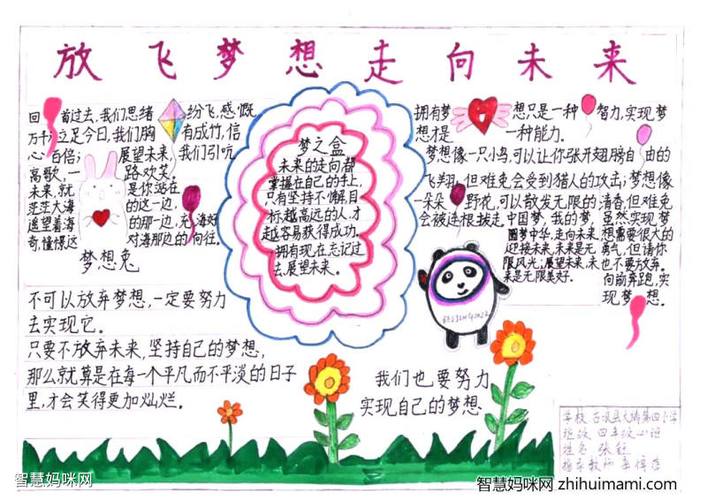 放飞梦想走向未来
回首过去,我们思绪纷飞,感慨
万千;立足今日,我们胸有成竹,信
心百倍;展望未来,我们引吭
高歌,一路欢笑。
未来,就是你站在
茫茫大海的这一边,
遥望着海的那一边,充满好
奇,憧憬这对海那边的向往。
梦想兔
不可以放弃梦想,一定要努力
去实现它。
只要不放弃未来,坚持自己的梦想,
那么就算是在每一个平凡而不平淡的日子
里,才会笑得更加灿烂。
梦之盒
未来的走向都
掌握在自己的手上,
只有坚持不懈,目
标越高远的人,才
越容易获得成功。
拥有现在,忘记过
去,展望未来。
拥有梦想只是一种智力,实现梦
想才是一种能力。
梦想像一只小鸟,可以让你张开翅膀自由的
飞翔,但难免会受到猎人的攻击;梦想像
一朵朵野花,可以散发无限的清香,但难免
会被连根拔走。
中国梦,我的梦,
圆梦中华,走向未来,
迎接未来,未来是无
限风光;展望未来,未
来是无限美好。
虽然实现梦
想需要很大的
勇气,但请你
也不要放弃。
向前奔跑,实
现梦想。
BEIJING2022
我们也要努力
实现自己的梦想
学校
班级 四年级
姓名 张
指导教师
智慧妈咪网
智慧妈咪网 zhihuimami.com